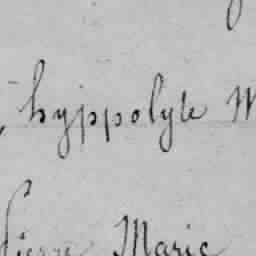 , hyppolyte M
Pierre Marie